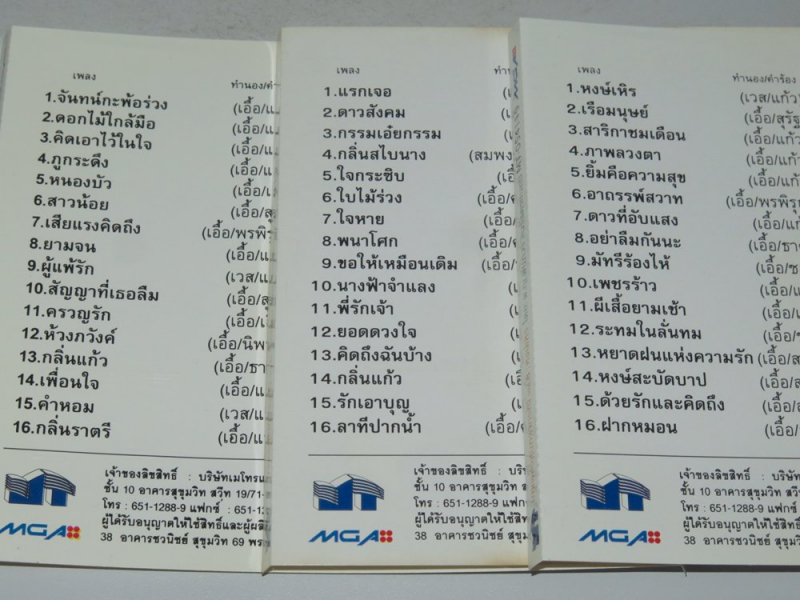 เพลง
ทำนอง/คำ
1.จันทน์กะพ้อร่วง (เอื้อ/แ
2.ดอกไม้ใกล้มือ (เอื้อ/แ
3.คิดเอาไว้ในใจ (เอื้อ/แ
4.ภูกระดึง (เอื้อ/แ
5.หนองบัว (เอื้อ/
6.สาวน้อย (เอื้อ/สุ
7.เสียแรงคิดถึง (เอื้อ/พรพิร
8.ยามจน (เอื้อ/แ
9.ผู้แพ้รัก (เวส/แ
10.สัญญาที่เธอลืม (เอื้อ/สุ
11.ครวญรัก (เอื้อ/
12.ห้วงภวังค์ (เอื้อ/นิพ
13.กลิ่นแก้ว (เอื้อ/ธา
14.เพื่อนใจ (เอื้อ/แ
15.คำหอม (เวส/แ
16.กลิ่นราตรี (เอื้อ/แ
เจ้าของลิขสิทธิ์ : บริษัทเมโทรแ
ชั้น 10 อาคารสุขุมวิท สวีท 19/71-
โทร : 651-1288-9 แฟกซ์ : 651-12
ผู้ได้รับอนุญาตให้ใช้สิทธิ์และผู้ผลิ
38 อาคารชวนิชย์ สุขุมวิท 69 พร
MGA
เพลง
ทำ
1.แรกเจอ
2.ดาวสังคม
3.กรรมเอ๋ยกรรม
4.กลิ่นสไบนาง (สมพง
5.ใจกระซิบ (เอื้
6.ใบไม้ร่วง (เอื้อ/
7.ใจหาย (เอื้อ/
8.พนาโศก (เอื้อ/
9.ขอให้เหมือนเดิม (เอื้อ/
10.นางฟ้าจำแลง
11.พี่รักเจ้า
12.ยอดดวงใจ
13.คิดถึงฉันบ้าง
14.กลิ่นแก้ว
15.รักเอาบุญ
16.ลาทีปากน้ำ (เอื้อ/
เจ้าของลิขสิทธิ์ : บริษ
ชั้น 10 อาคารสุขุมวิท ส
โทร : 651-1288-9 แฟก
ผู้ได้รับอนุญาตให้ใช้สิท
38 อาคารชวนิชย์ สุขุม
MGA
เพลง
ทำนอง/คำร้อง
1.หงษ์เหิร (เวส/แก้ว
2.เรือมนุษย์ (เอื้อ/สุรัฐ
3.สาริกาชมเดือน (เอื้อ/แก้ว
4.ภาพลวงตา (เอื้อ/แก้ว
5.ยิ้มคือความสุข (เอื้อ/แก้
6.อาถรรพ์สวาท (เอื้อ/พรพิรุ
7.ดาวที่อับแสง (เอื้อ/แก้
8.อย่าลืมกันนะ (เอื้อ/ธา
9.มัทรีร้องไห้ (เอื้อ/ช
10.เพชรร้าว (เอื้อ/แ
11.ผีเสื้อยามเช้า (เอื้อ/แ
12.ระทมในลั่นทม (เอื้อ/ช
13.หยาดฝนแห่งความรัก (เอื้อ/ส
14.หงษ์สะบัดบาป (เอื้อ/ส
15.ด้วยรักและคิดถึง (เอื้อ/ส
16.ฝากหมอน (เอื้อ/
เจ้าของลิขสิทธิ์ : บริษัทเ
ชั้น 10 อาคารสุขุมวิท สวีท
โทร : 651-1288-9 แฟกซ์
ผู้ได้รับอนุญาตให้ใช้สิทธิ์แ
38 อาคารชวนิชย์ สุขุมวิ
MGA